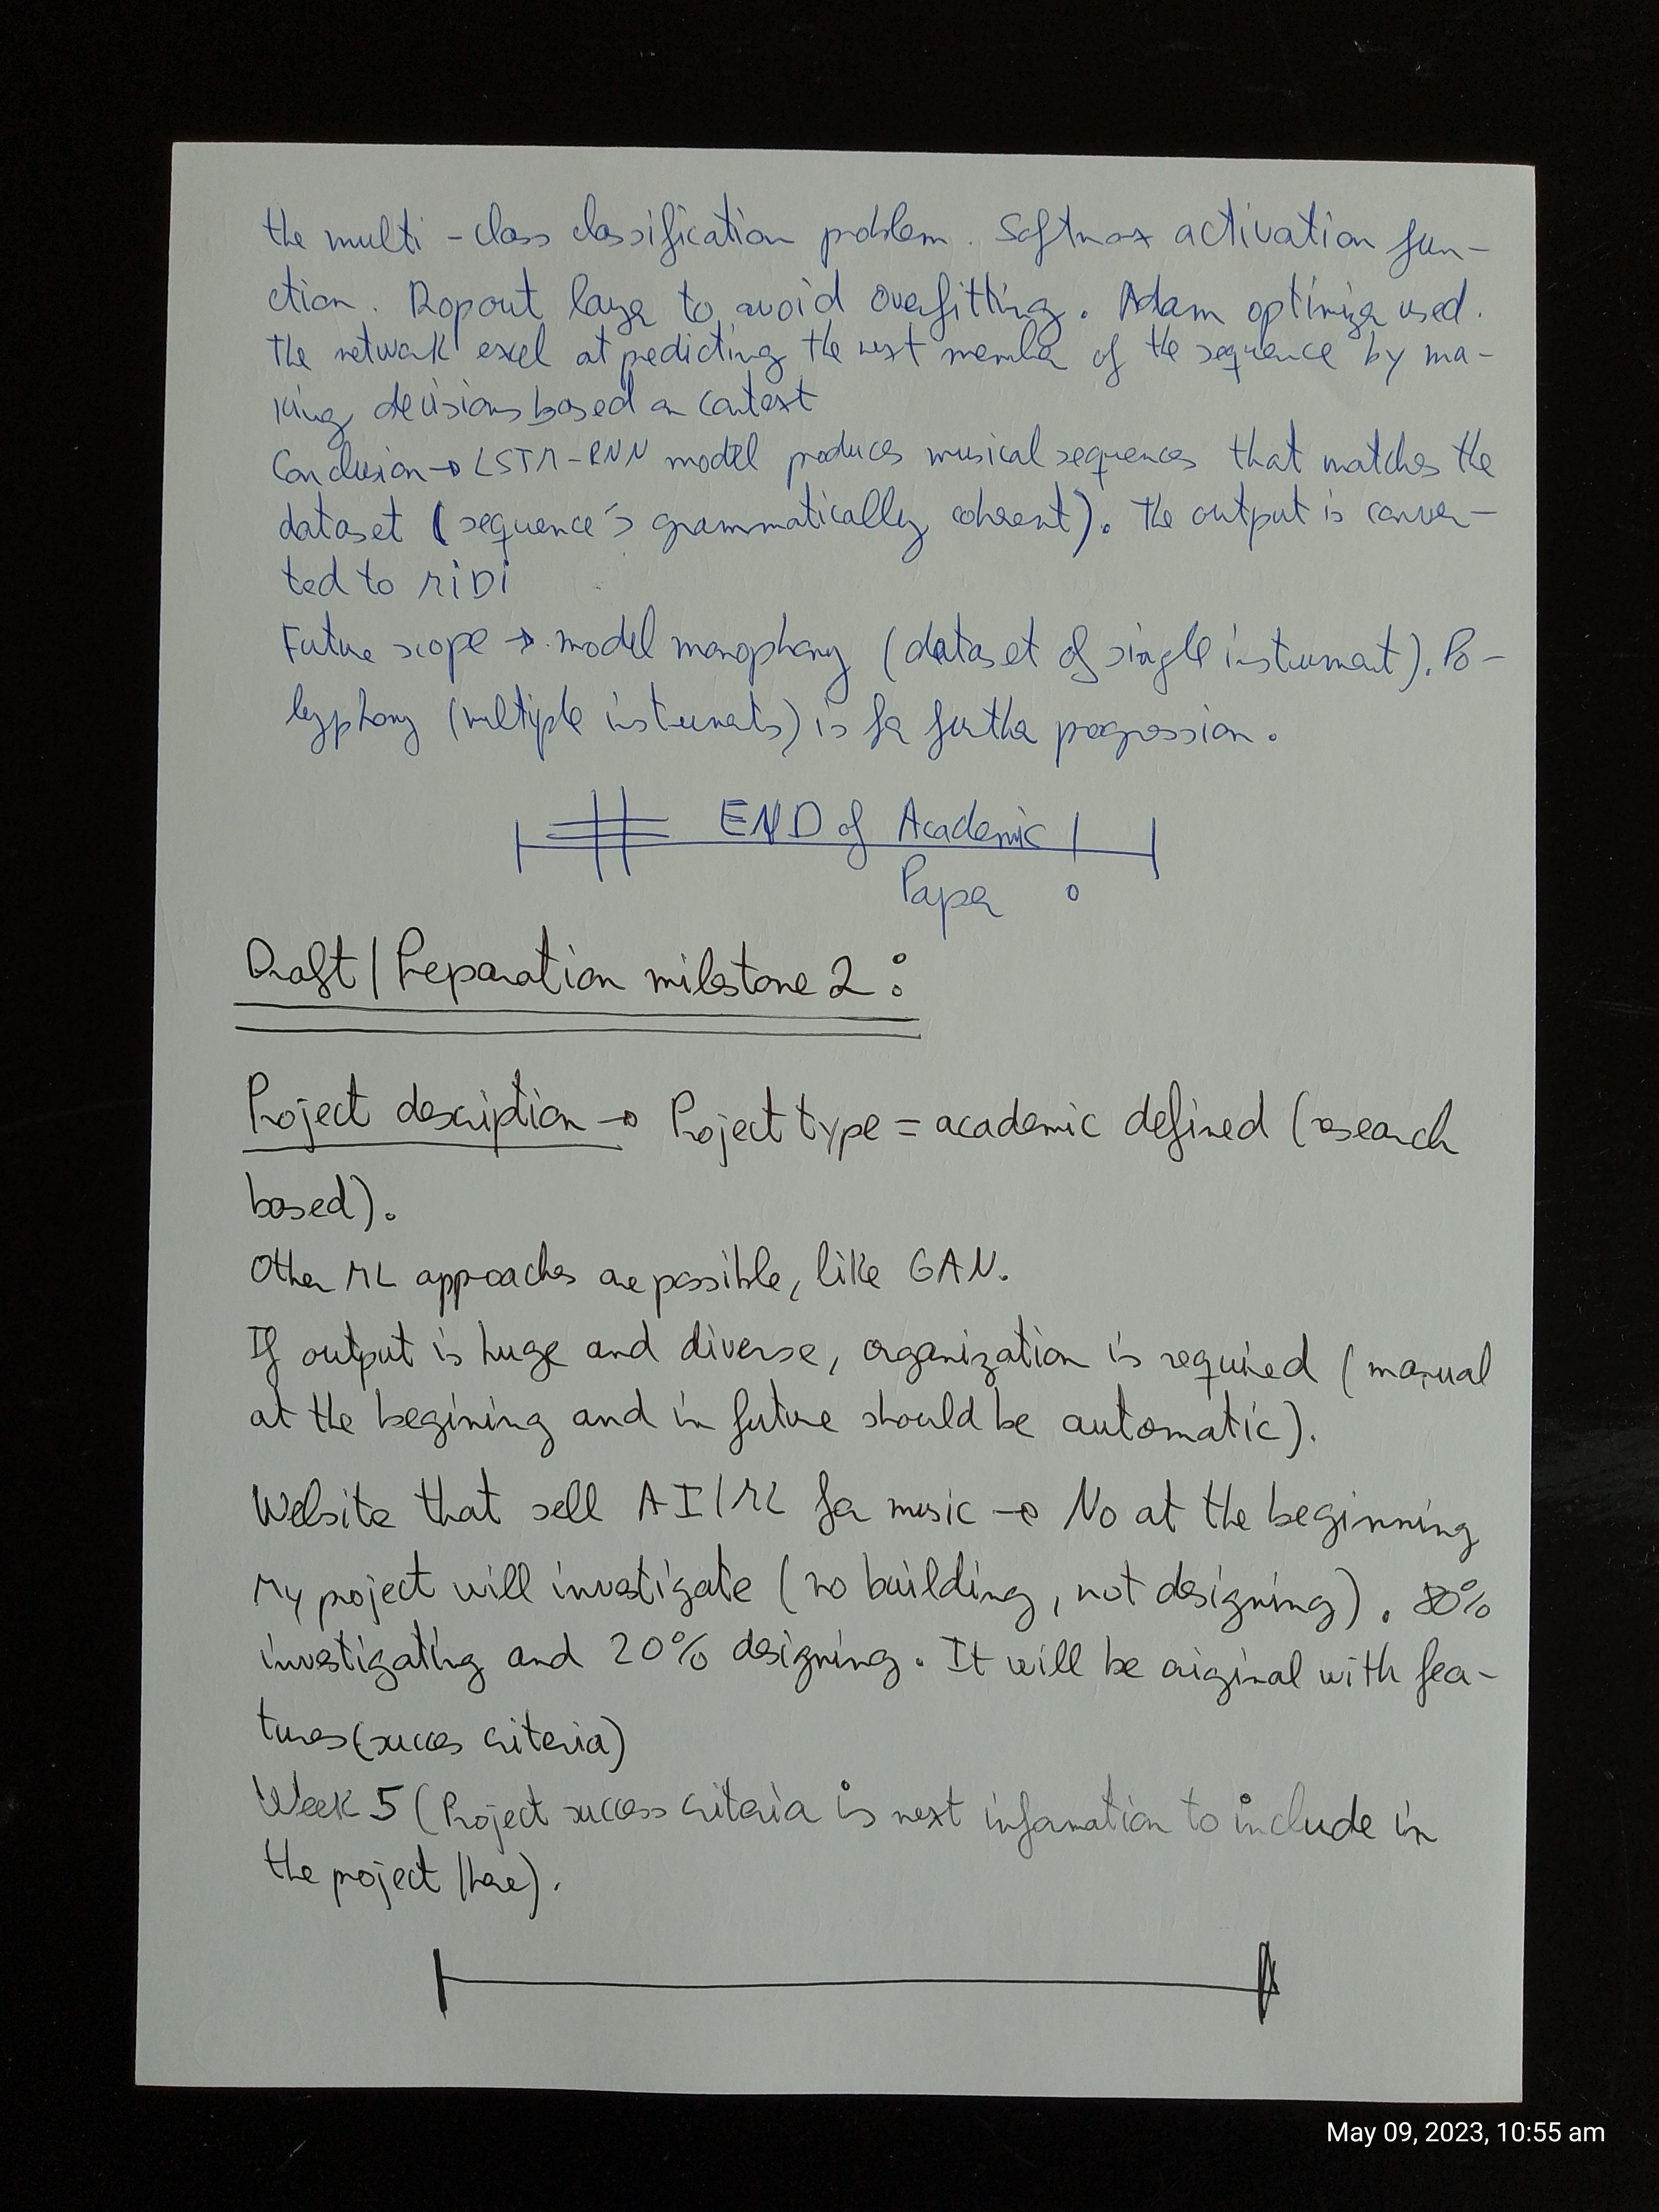 the multi-class classification problem. Softmax activation fun-
ction. Dropout layer to avoid overfitting. Adam optimizer used.
The network excel at predicting the next member of the sequence by ma-
king decisions based on context
Conclusion → LSTM-RNN model produces musical sequences that matches the
dataset (sequence's grammatically coherent). The output is conver-
ted to MiDi
Future scope → model monophony (dataset of single instrument). Po-
lyphony (multiple instruments) is for further progression.
# END of Academic !
Paper
Draft/Preparation milestone 2:
Project description → Project type = academic defined (research
based).
Other ML approaches are possible, like GAN.
If output is huge and diverse, organization is required (manual
at the begining and in future should be automatic).
Website that sell AI/ML for music → No at the beginning
My project will investigate (no building, not designing). 80%
investigating and 20% designing. It will be original with fea-
tures (succes criteria)
Week 5 (Project success criteria is next information to include in
the project/here).
May 09, 2023, 10:55 am